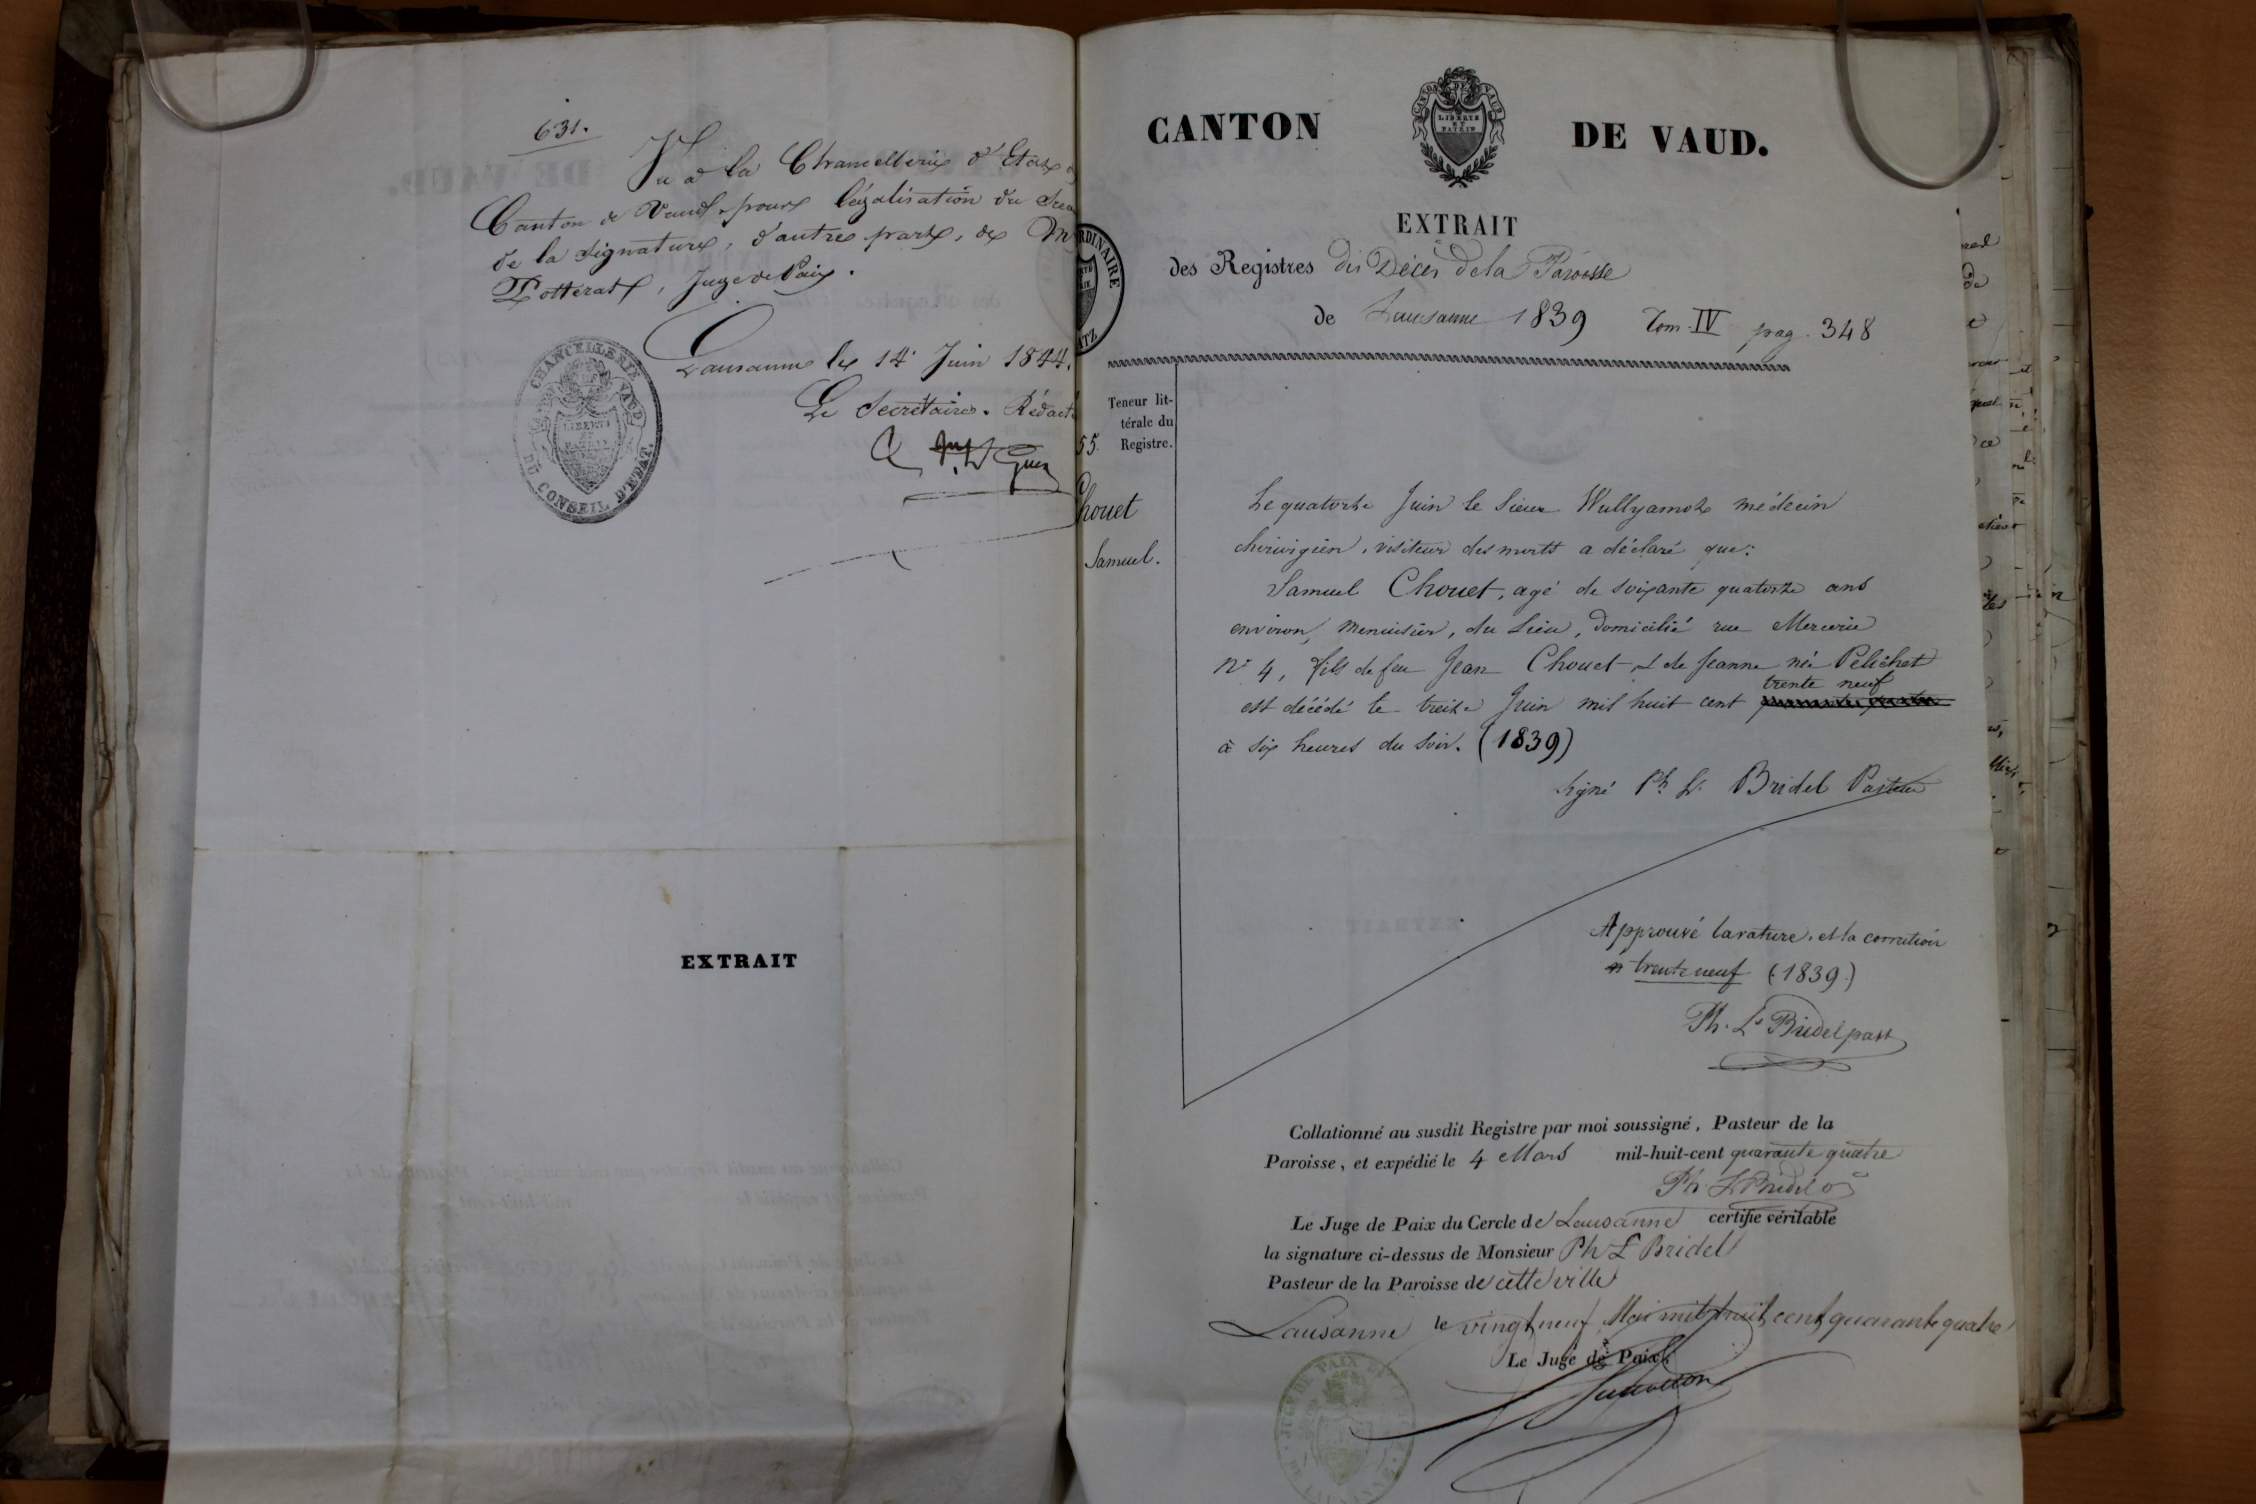 631.
Vu à la Chancellerie d'Etat d
Canton de Vaud, pour légalisation du Sceau
de la signature, d'autre part, de M
Potterat, Juge de Paix.
Lausanne le 14 Juin 1844.
Le Secrétaire. Rédact
CHANCELLERIE
DU CONSEIL D'ETAT.
VAUD
LIBERTÉ
ET
PATRIE
EXTRAIT
CANTON DE VAUD.
CANTON DE VAUD
LIBERTE
ET
PATRIE
EXTRAIT
des Registres des Décès de la Paroisse
de Lausanne 1839 Tom. IV pag. 348
RDINAIRE
TZ
Teneur lit-
térale du
55. Registre.
Chouet
Samuel.
Le quatorze Juin le Sieur Wullyamoz médecin
chirurgien, visiteur des morts a déclaré que:
Samuel Chouet, agé de soixante quatorze ans
environ, menuisier, du Lieu, domicilié rue Mercerie
No 4, fils de feu Jean Chouet & de Jeanne née Pelichet
trente neuf
est décédé le treize Juin mil huit cent
à six heures du soir. (1839)
Signé Ph. L. Bridel Pasteur
Approuvé la rature, et la correction
trente neuf (1839.)
Ph. Ls Bridel past
Collationné au susdit Registre par moi soussigné, Pasteur de la
Paroisse, et expédié le 4 Mars mil-huit-cent quarante quatre
Ph. L. Bridel
Le Juge de Paix du Cercle de Lausanne certifie véritable
la signature ci-dessus de Monsieur Ph L Bridel
Pasteur de la Paroisse de cette ville
Lausanne le vingt neuf Mai mil huit cent quarante quatre
Le Juge de Paix.
JUGE DE PAIX
LAUSANNE